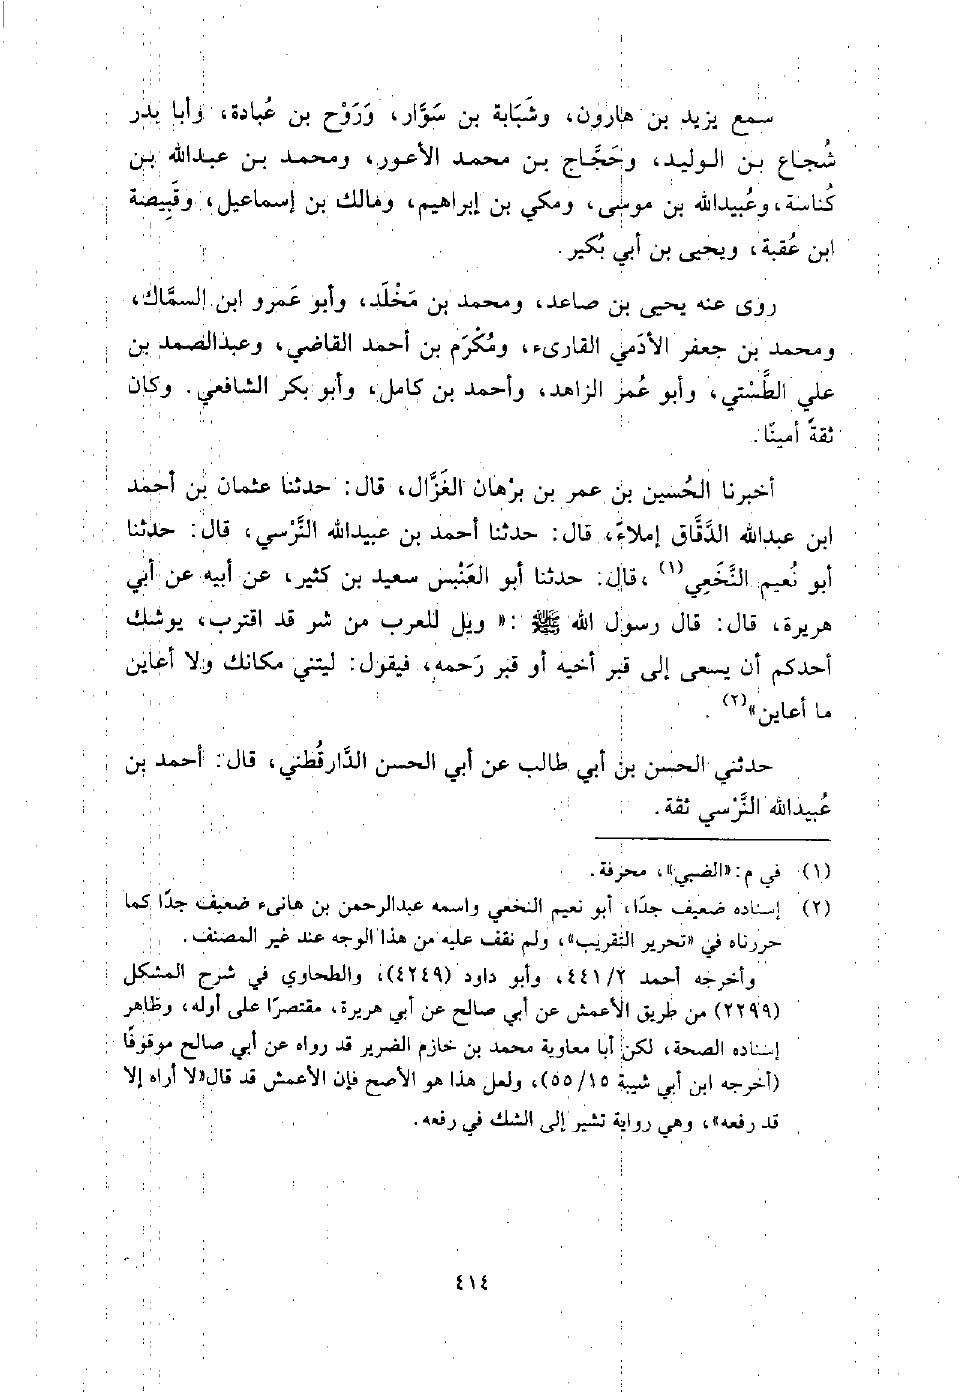 سمع يزيد بن هارون، وشَبَابة بن سَوَّار، ورَوْح بن عُبادة، وأبا بدر
شُجاع بن الوليد، وحَجَّاج بن محمد الأعور، ومحمد بن عبدالله بن
كُناسة، وعُبيدالله بن موسى، ومكي بن إبراهيم، ومالك بن إسماعيل، وقَبِيصة
ابن عُقبة، ويحيى بن أبي بُكير.
روى عنه يحيى بن صاعد، ومحمد بن مَخْلَد، وأبو عَمرو ابن السمَّاك،
ومحمد بن جعفر الأدَمي القارىء، ومُكْرَم بن أحمد القاضي، وعبدالصمد بن
علي الطَّسْتي، وأبو عُمر الزاهد، وأحمد بن كامل، وأبو بكر الشافعي. وكان
ثقةً أمينًا.
أخبرنا الحُسين بن عمر بن برْهان الغَزَّال، قال: حدثنا عثمان بن أحمد
ابن عبدالله الدَّقَّاق إملاءً، قال: حدثنا أحمد بن عبيدالله النَّرْسي، قال: حدثنا
أبو نُعيم النَّخَعي(١)، قال: حدثنا أبو العَنْبس سعيد بن كثير، عن أبيه عن أبي
هريرة، قال: قال رسول الله ﷺ: «ويل للعرب من شر قد اقترب، يوشك
أحدكم أن يسعى إلى قبر أخيه أو قبر رَحمه، فيقول: ليتني مكانك ولا أعاين
ما أعاين»(٢).
حدثني الحسن بن أبي طالب عن أبي الحسن الدَّارقُطني، قال: أحمد بن
عُبيدالله النَّرْسي ثقة.
(١) في م: «الضبي»، محرفة.
(٢) إسناده ضعيف جدًا، أبو نعيم النخعي واسمه عبدالرحمن بن هانىء ضعيف جدًا كما
حررناه في «تحرير التقريب»، ولم نقف عليه من هذا الوجه عند غير المصنف.
وأخرجه أحمد ٢/ ٤٤١، وأبو داود (٤٢٤٩)، والطحاوي في شرح المشكل
(٢٢٩٩) من طريق الأعمش عن أبي صالح عن أبي هريرة، مقتصرًا على أوله، وظاهر
إسناده الصحة، لكن أبا معاوية محمد بن خازم الضرير قد رواه عن أبي صالح موقوفًا
(أخرجه ابن أبي شيبة ١٥/ ٥٥)، ولعل هذا هو الأصح فإن الأعمش قد قال «لا أراه إلا
قد رفعه»، وهي رواية تشير إلى الشك في رفعه.
٤١٤